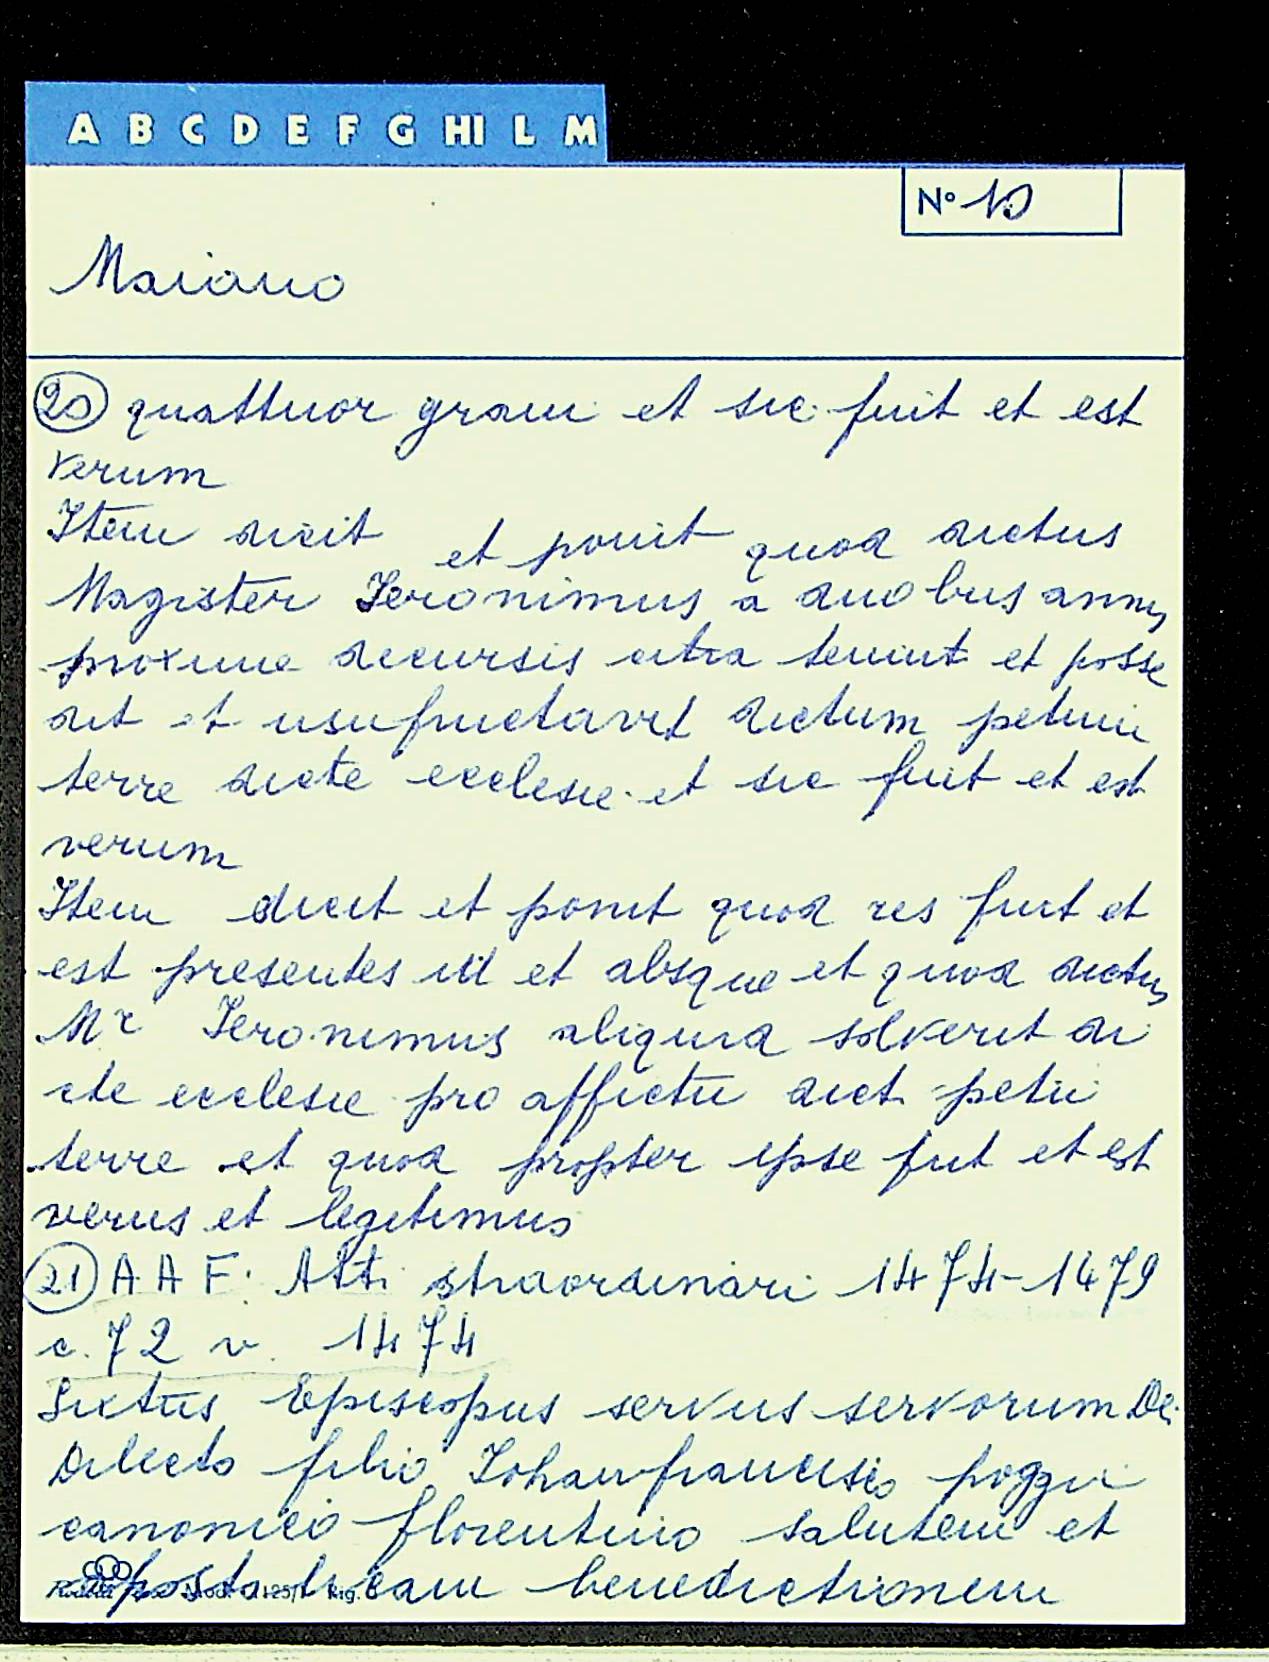 A B C D E F G HI L M
N° 10
Maiano
20 quattuor grani et sic fuit et est
verum
Item dicit et ponit quod dictus
Magister Ieronimus a duobus annis
proxime decursis citra tenuit et posse
dit et usufructavit dictum petium
terre dicte ecclesie et sic fuit et est
verum
Item dicit et ponit quod res fuit et
est presentes et absque et quod dictus
Mr Ieronimus aliquid solverit di
cte ecclesie pro affictu dict petii
terre et quod propter ipse fuit et est
verus et legitimus
21 A A F. Atti straordinari 1474-1479
c. 72 v. 1474
Sixtus Episcopus servus servorum Dei
Dilecto filio Iohanfrancisco poggii
canonico florentino salutem et
apostolicam benedictionem